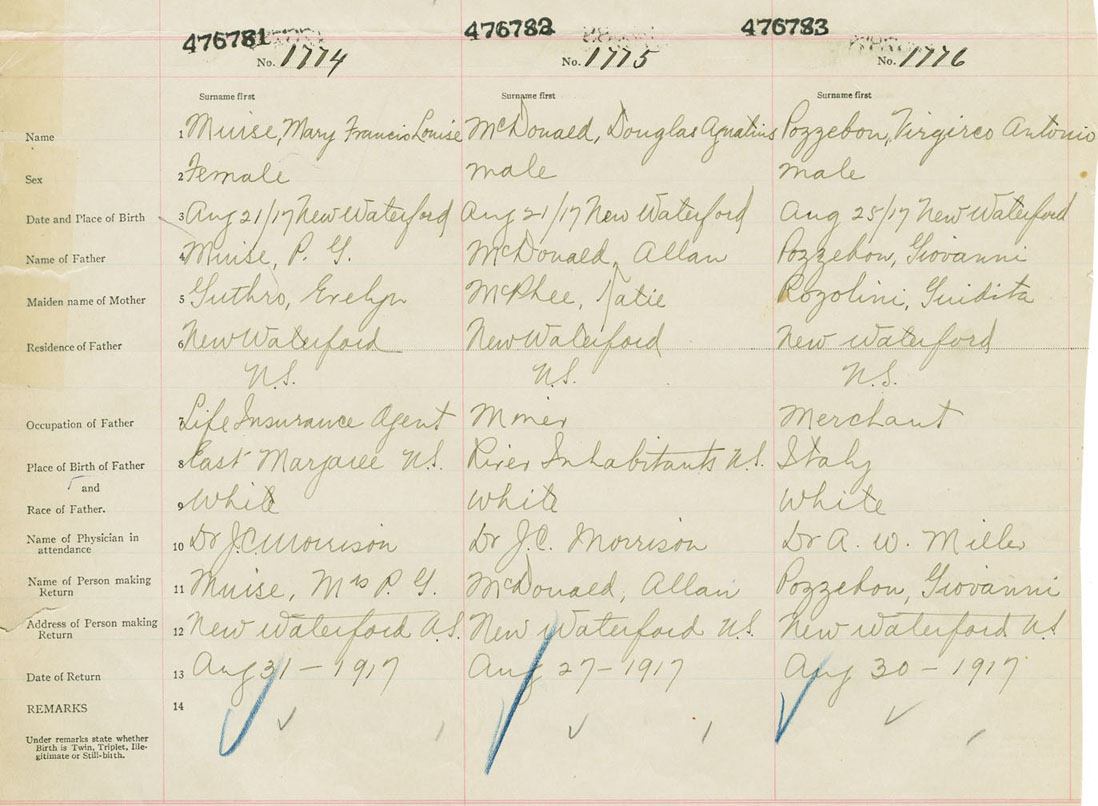 476781 476782 476783
No. 1774 No. 1775 No. 1776
Surname first Surname first Surname first
Name 1 Muise, Mary Francis Louise McDonald, Douglas Ignatius Pozzebon, Antonio
Sex 2 Female male male
Date and Place of Birth 3 Aug 21/17 New Waterford Aug 21/17 New Waterford Aug 25/17 New Waterford
Name of Father 4 Muise, P. G. McDonald, Allan Pozzebon, Giovanni
Maiden name of Mother 5 Guthro, Evelyn McPhee, Katie Rozolini, Guidita
Residence of Father 6 New Waterford New Waterford New Waterford
N.S. N.S. N.S.
Occupation of Father 7 Life Insurance Agent Miner Merchant
Place of Birth of Father 8 East Margaree N.S. River Inhabitants N.S. Italy
and
Race of Father. 9 White White White
Name of Physician in
attendance 10 Dr J.C. Morrison Dr J.C. Morrison Dr A. W. Miller
Name of Person making
Return 11 Muise, Mrs P. G. McDonald, Allan Pozzebon, Giovanni
Address of Person making
Return 12 New Waterford N.S. New Waterford N.S. New Waterford N.S.
Date of Return 13 Aug 31 - 1917 Aug 27 - 1917 Aug 30 - 1917
REMARKS 14
Under remarks state whether
Birth is Twin, Triplet, Ille-
gitimate or Still-birth.